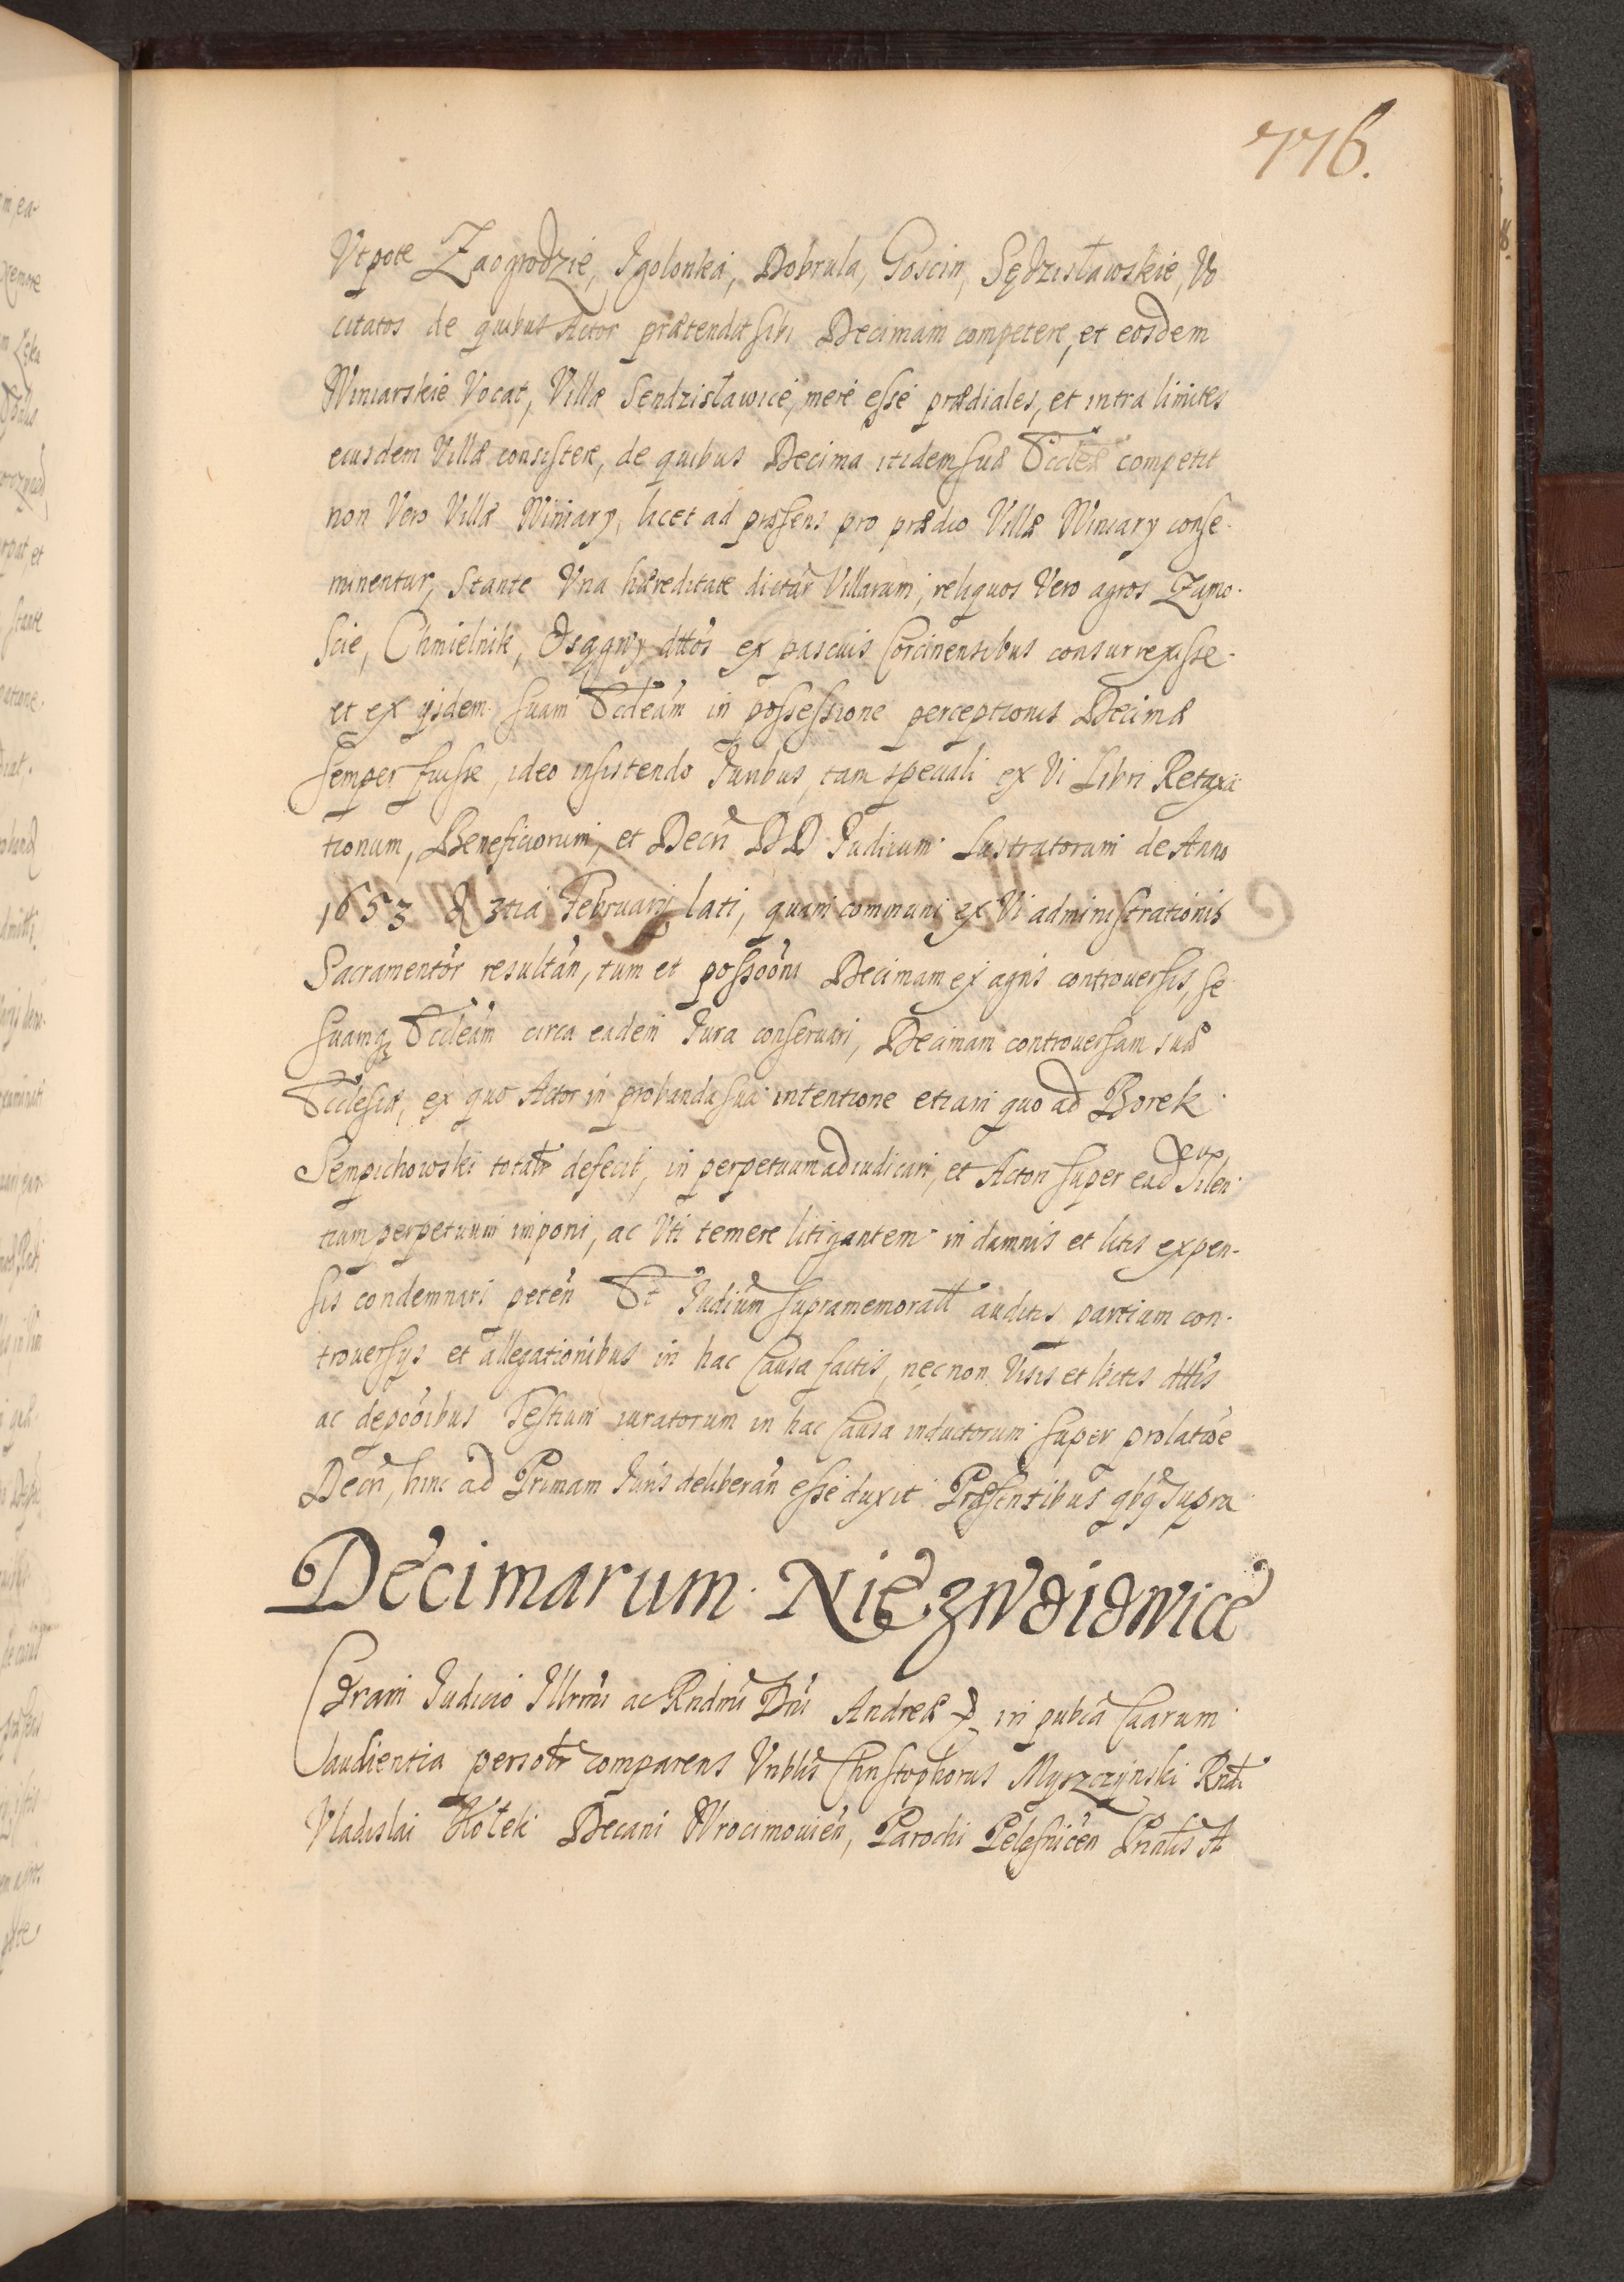 776.
Vtpote Zaogrodzie, Igolonka, Dobrula, Goscin, Sędzisławskie, Vo
citatos de quibus Actor prætendit sibi Decimam competere, et eosdem
Winiarskie Vocat, Villæ Sendzisławice, mere esse prædiales, et intra limites
eiusdem Villæ consistere, de quibus Decima itidem suæ Eccleæ competit
non Vero Villæ Winiary, licet ad præsens pro prædio Villæ Winiary conse-
minentur, Stante Vna hæreditate dictar Villarum, reliquos Vero agros Zamo-
scie, Chmielnik, dttos ex pascuis Corcinensibus consurrexisse
et ex ijsdem suam Eccleam in possessione perceptionis Decimæ
semper fuisse, ideo insistendo Iuribus, tam speciali ex Vi Libri Retaxa
tionum, Beneficiorum, et Decri DD Iudicum Lustratorum de Anno
1653 & 3tia Februarij lati, quam communi ex Vi administrationis
Sacramentor resultan, tum et possoõni Decimam ex agris controuersis, se
suamq Eccleam circa eadem Iura conseruari, Decimam controuersam suæ
Ecclesiæ, ex quo Actor in probanda sua intentione etiam quo ad Borek
Sempichowski totalr defecit, in perpetuum adiudicari, et Actori super ead Silen-
tium perpetuum imponi, ac Vti temere litigantem in damnis et litis expen-
sis condemnari peten Et Iudium supramemoratt auditis partium con-
trouersijs et allegationibus in hac Causa factis, nec non Visis et lectis dttis
ac depoõibus Testium iuratorum in hac Causa inductorum super prolatõe
Decri, hinc ad Primam Iuris deliberan esse duxit Præsentibus qbq supra
Decimarum Niezwoiowice
Coram Iudicio Illrmi ac Rndmi Dni Andreæ in pubca Caarum
audientia persolr comparens Vnblis Christophorus Myszczynski Rndi
Vladislai Kołek Decani Wrocimouien, Parochi Pelesnicen Prnalis A